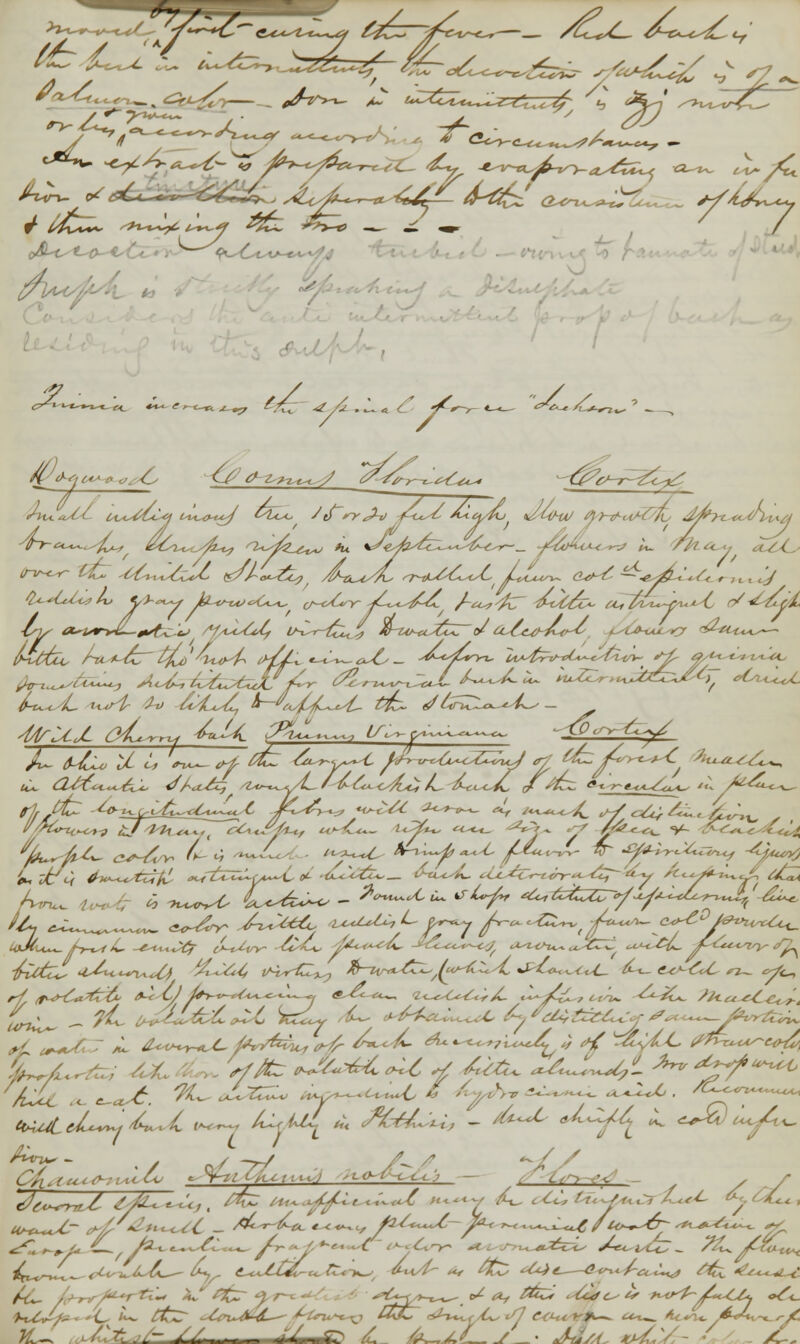 moved by first curing the fever – Red bark is
the best in intermittents, the decoction of which is of a
Salmon color – Dose in intermittents, is ℥j more
or less, according according to circumstances –
An extract is prepared by evaporating an infu
sion & separately to the consistence of honey
& then mixing the two – – –
Decoction always turbid – owing to tannate of
Sulph is strictly speaking a Disulphate
Considers the anti intermittent prop of bark as
residing in this sulph.
Quinia increases the spinal force "Jackson" –
Dogwood Cornus Floridas Cortex
Small indiginous tree, 15 or 20 feet high, slow growth, spreading
branches, drupes ripen in September – flowers in May, all
over the United States, bark rolled, fawn cold epidermis
reddish gray powder, odor feeble, taste bitter astringent & slight
ly aromatic, yields virtues to water & alcohol, flowers same
bitter taste tho' not officinal – before introduction of quinia
sometimes substituted for Peruvian bark in intermittents, dried
bark not so likely to affect the stomach –
Wild Cherry bark Prunus Virginiana Cortex
In Ohio it is one of the largest productions of the forest, smaller
in Atlantic States, rough blackish bark & the circular in place
of the longitudinal fibres will serve as mark of distinction
flowers in May, drupes when ripe are size of pea & blackish
purple color & is much used to impart flavor to spirituous liquors
as it is sweetish astringent & bitter – bark deteriorates by keeping, that
from roots is most active – Found in shops destitute of epidermis, live
ly cinnamon color brittle, reddish gray fracture, fawn cold powder
when fresh emits odor like peach leaves, aromatic, with flavor of
bitter almonds, Yields virtues to water, (which should be cold on
of volatile oil) producing clear reddish infusion like Madeira
wine – The volatile oil may be obtained by distilling same portion
of water in several portions of bark successively, is of light straw cold
properties like those of the volatile oil of bitter almonds – Two drops will
kill a cat. The active ingredient is hydrocianic acid. Recommen
wild cherry bark very highly in Phthisis – Used chiefly in cold infu
sion –
Chamomile Anthemis nobilis – Flores –
Several species, the unofficinal may be distinguished by their
want of smell – Herbaceous plant perennial root native of
Europe –, peculiar fragrent odor aromatic taste – The flowers
become double by cultivation, but as the disc contains the sensi
ble properties in the greatest degree & as this disc is not fully de
veloped in the double flowers the single of course are more powerf
The whitest flowers should be